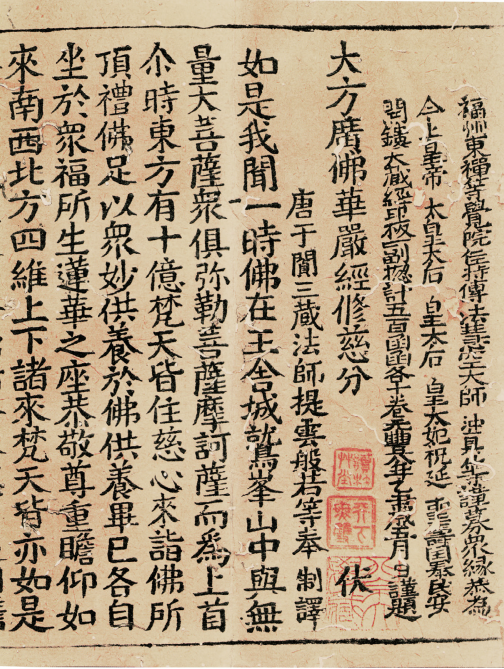 福州東禪等覺院住持傳法慧空大師 沖真等謹募衆緣恭為
今上皇帝 太皇太后 皇太后 皇太妃祝延 聖壽國泰民安
開鏤大藏經印板一副揔計五百函函各十卷元豐八年乙丑歲五月 日謹題
大方廣佛華嚴經修慈分 伏
唐于闐三藏法師提雲般若等奉 制譯
如是我聞一時佛在王舍城鷲峯山中與無
量大菩薩衆俱弥勒菩薩摩訶薩而爲上首
尒時東方有十億梵天皆住慈心來詣佛所
頂禮佛足以衆妙供養於佛供養畢已各自
坐於衆福所生蓮華之座恭敬尊重瞻仰如
來南西北方四維上下諸來梵天皆亦如是